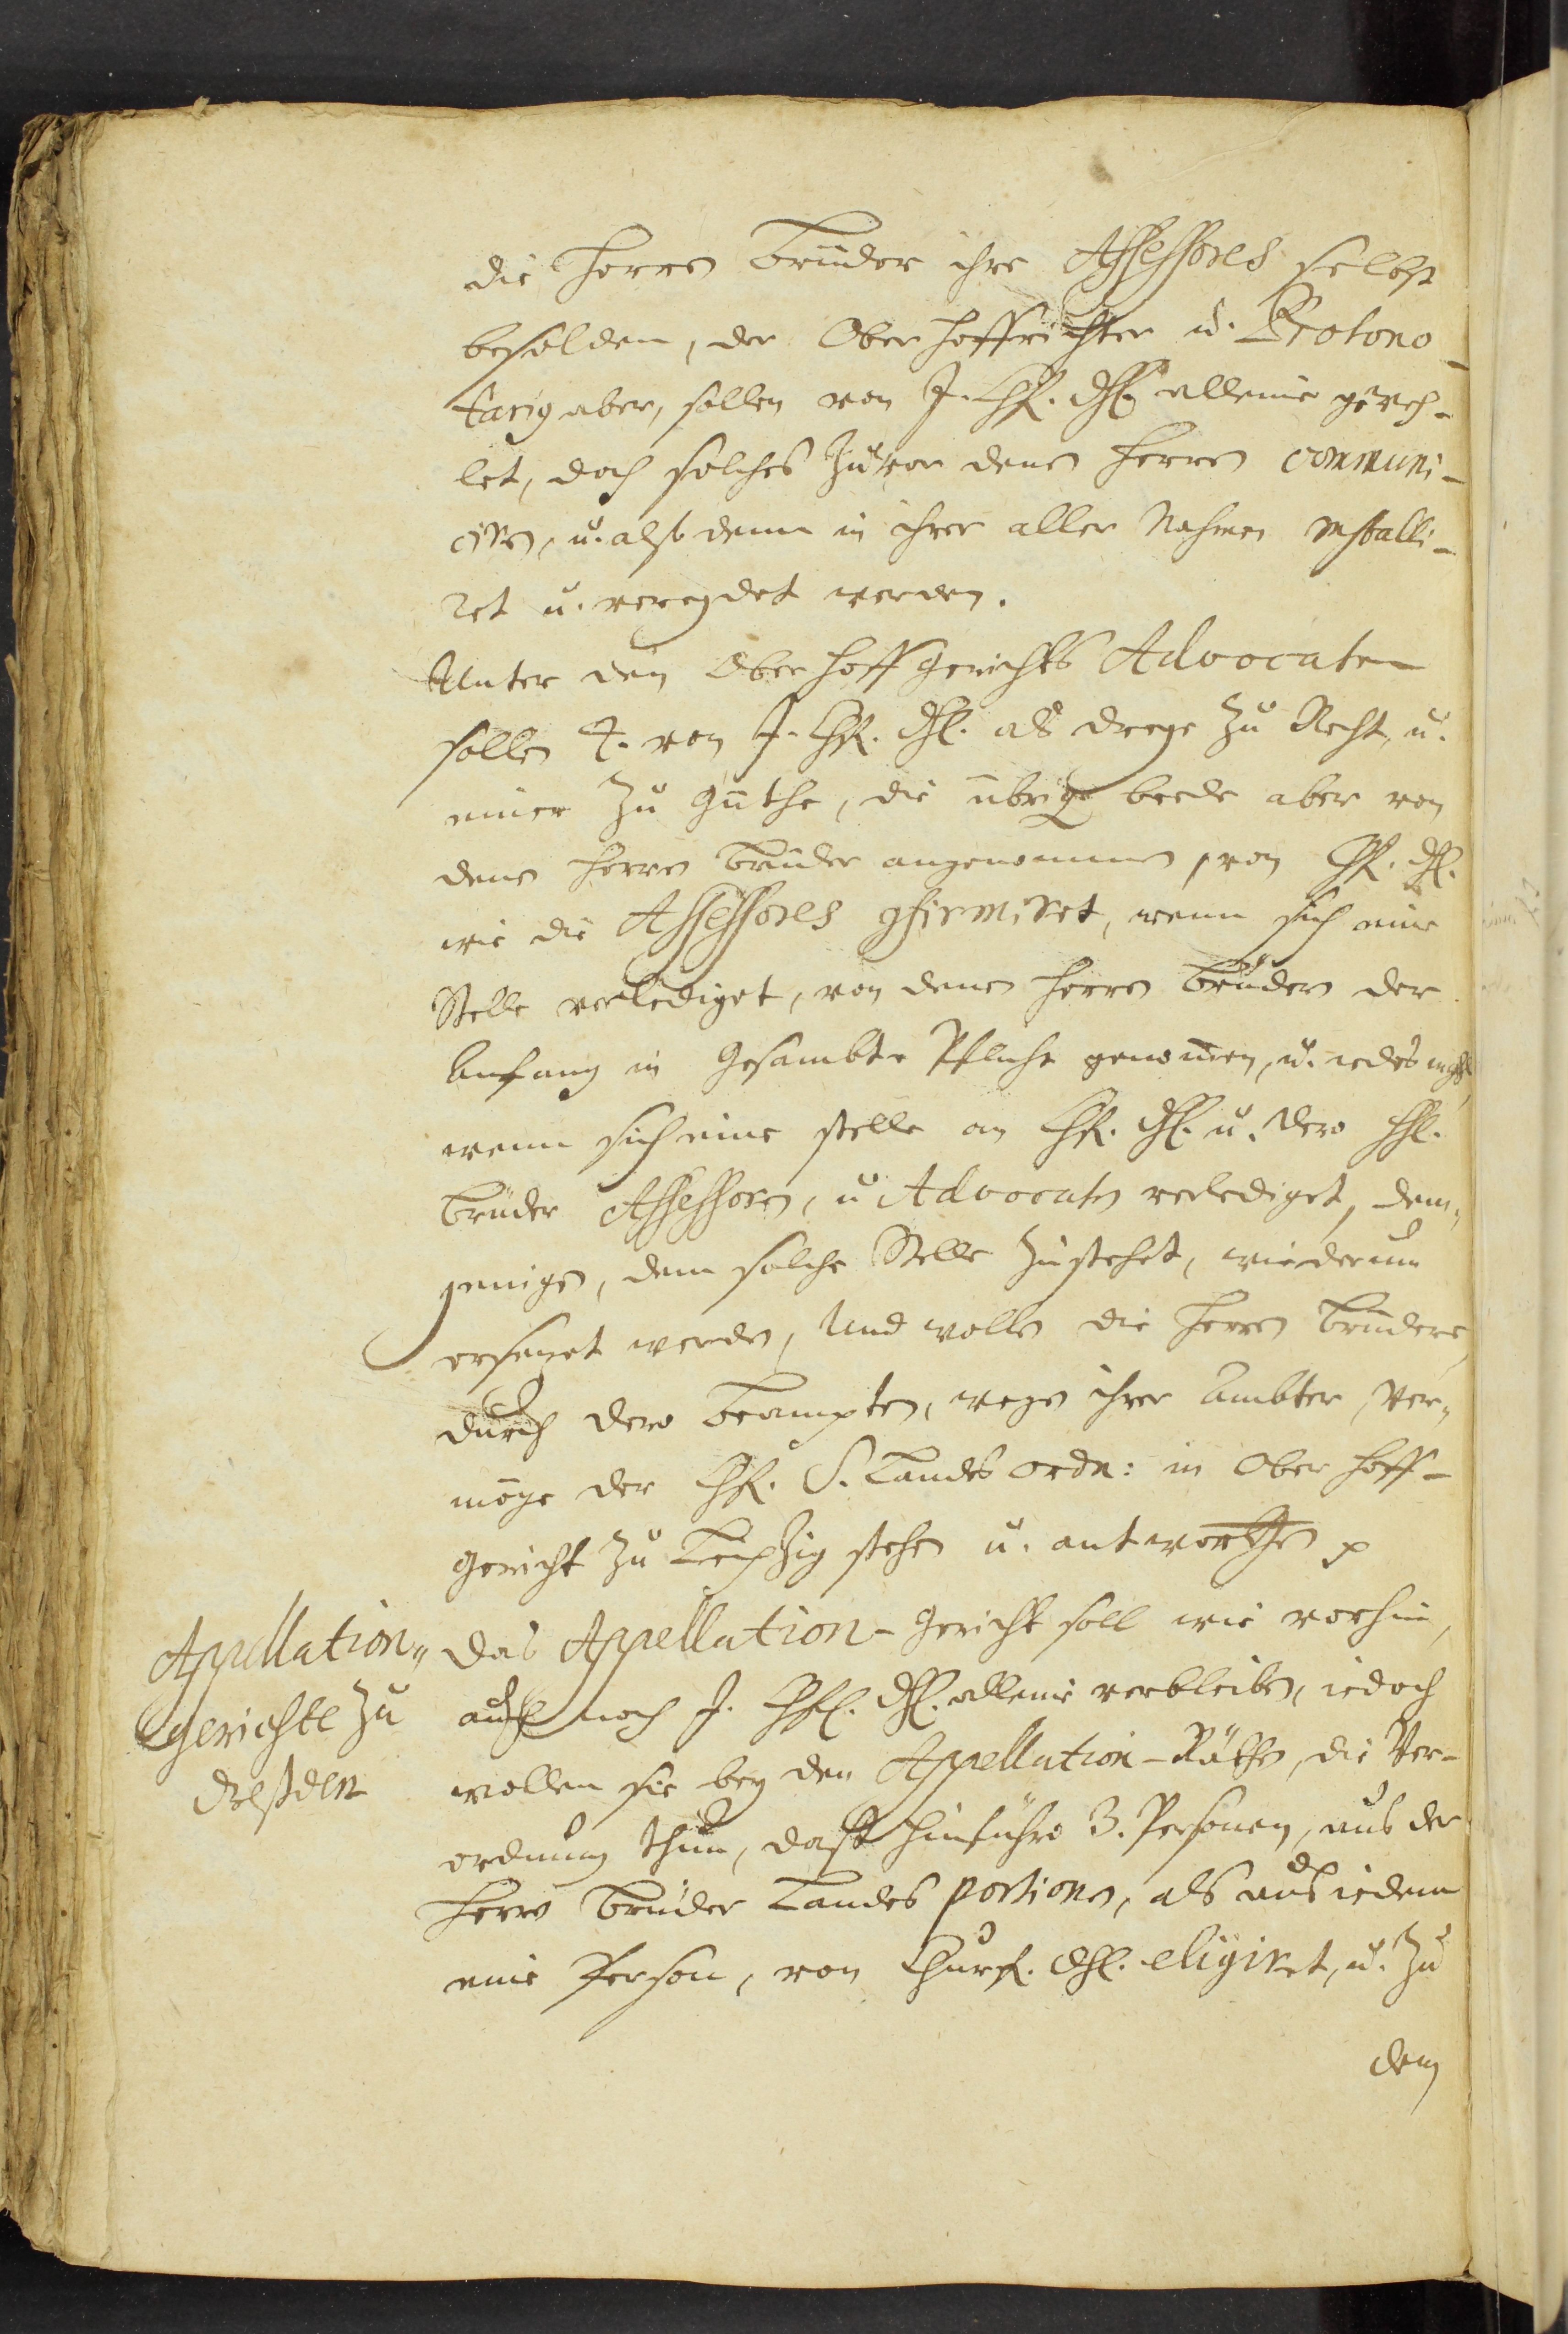 die Herren Brüder ihre Assessores selbst
besolden, der Ober Hoffrichter u. Protono-
tarig aber, sollen von J. Chf. Dhl. alleine
let, doch solches zuvor denen Herren communi-
ciren, u. alßdenn in ihrer aller Nahmen installi-
ret u. vereydet werden.
Unter den Ober Hoff Gerichts Advocaten
sollen 4. von J. Chf. Dhl. als dreye zu Recht, u.
einer zu Güthe, die übrige beede aber von
denen Herren Brüder angenommen, von Chf. Dhl.
wie die Assessores confirmiret, wenn sich eine
Stelle verlediget, von denen Herren Brüdern der
Anfang in Gesambte Pflicht genomen, u. iedes mahl
wenn sich eine stelle an Chf. Dhl. u. dero HH.
Brüder Assessoren, u Advocaten verlediget, dem„
jenigen, dem solche Stelle zustehet, wiederumb
ersezet werden, Und wollen die Herren Brüdere,
durch dero Beampten, wegen ihrer Ambter, Ver„
möge der Chf. S. Landes ordn: in Ober Hoff-
gericht zu Leipzig stehen u. antworthen p
Appellation„
Gerichte zu
Dreßden
Das Appellation-Gericht soll wie vorhin,
auch noch J. Chfl. Dhl. alleine verbleiben, iedoch
wollen sie bey den Appellation-Räthen, die Ver-
ordnung thun, daß hinführo 3. Personen, aus der
Herrn Brüder Landes portionen, als aus iedem
eine Person, von Churf. Dhl. eligiret, u. zu
dem